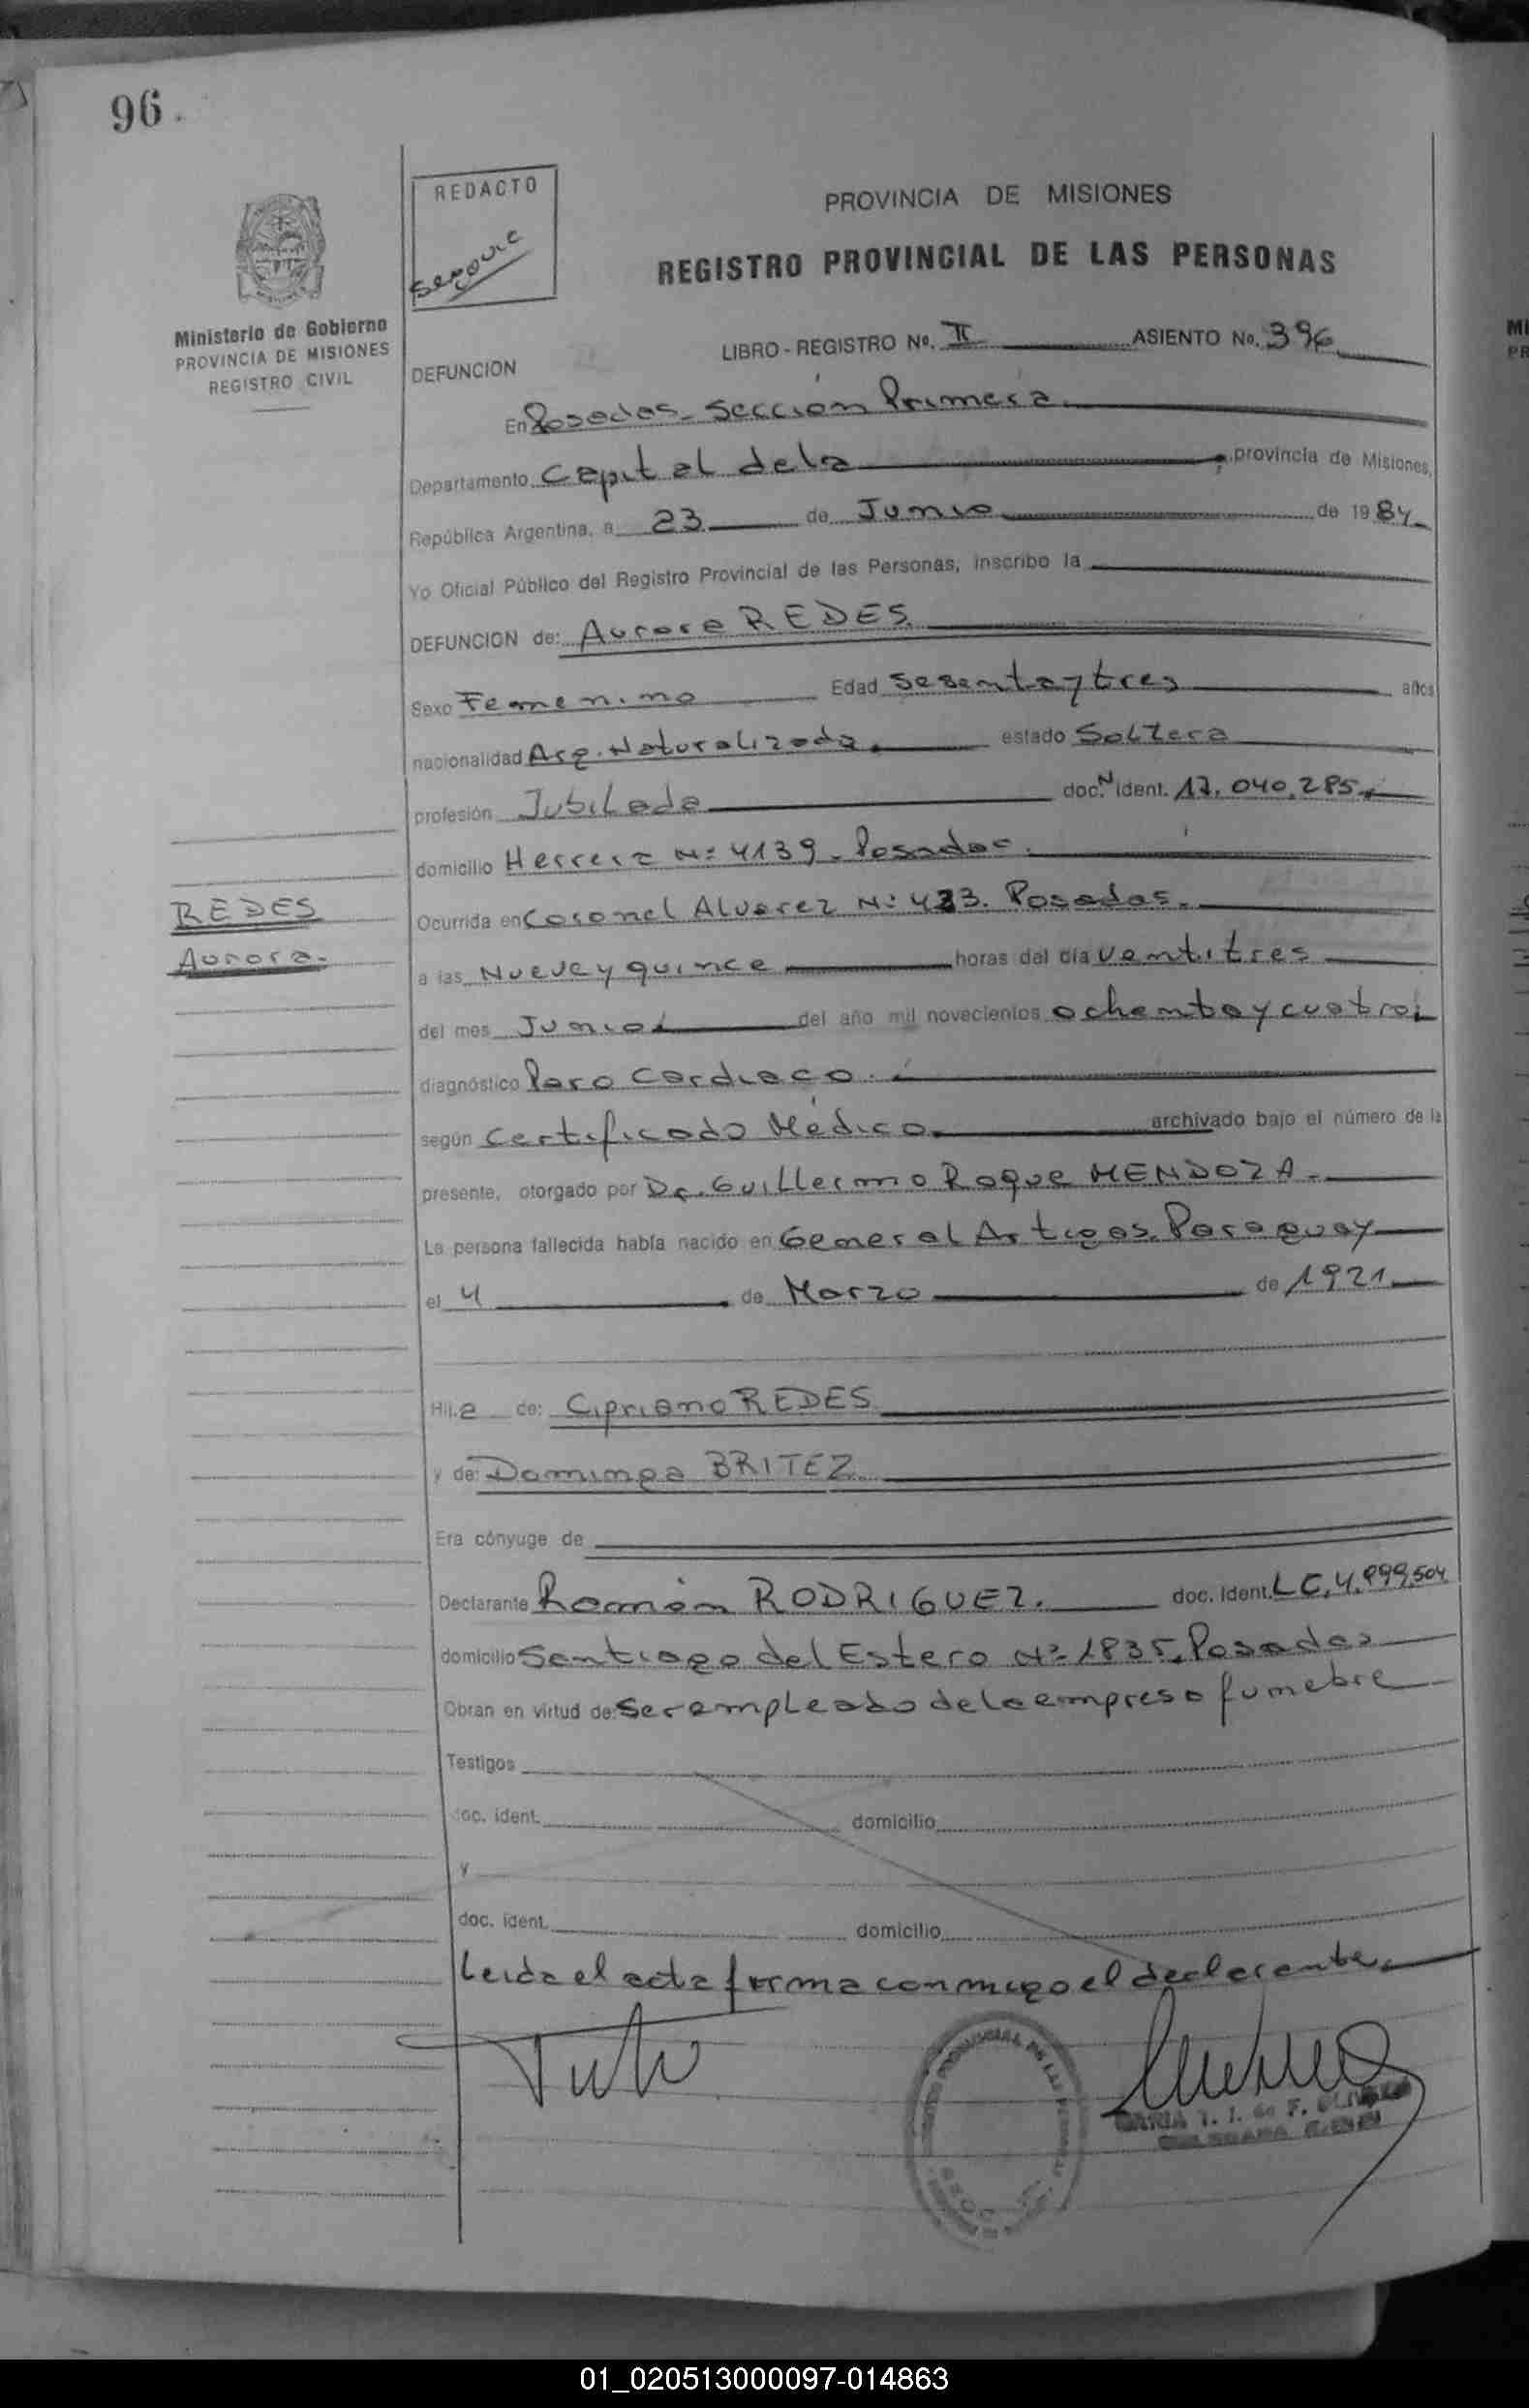 96.
REDACTO
PROVINCIA DE MISIONES
REGISTRO PROVINCIAL DE LAS PERSONAS
Ministerio de Gobierno
PROVINCIA DE MISIONES
REGISTRO CIVIL
LIBRO - REGISTRO Nº. II ASIENTO No. 396
DEFUNCION
En Posadas - Sección Primera
Departamento Capital de la , provincia de Misiones,
República Argentina, a 23 de Junio de 1984
Yo Oficial Público del Registro Provincial de las Personas, inscribo la
DEFUNCION de: Aurora REDES
Sexo Femenino Edad Sesenta y tres años
nacionalidad Arg. Naturalizada estado Soltera
profesión Jubilada doc. N ident. 17.040.285
domicilio Herrera Nº 4139 - Posadas.
REDES
Aurora.
Ocurrida en Coronel Alvarez Nº 433. Posadas.
a las Nueve y quince horas del día ventitres
del mes Junio del año mil novecientos ochenta y cuatro
diagnóstico Paro Cardiaco.
según Certificado Médico archivado bajo el número de la
presente, otorgado por Dr. Guillermo Roque MENDOZA.
La persona fallecida había nacido en General Artigas. Paraguay
el 4 de Marzo de 1921
Hij.a de: Cipriano REDES
y de: Dominga BRITEZ
Era cónyuge de
Declarante Ramón RODRIGUEZ. doc. ident. L.C. 4.999.504
domicilio Santiago del Estero Nº 1835. Posadas
Obran en virtud de: Ser empleado de la empresa funebre
Testigos
doc. ident. domicilio
y
doc. ident. domicilio
Leida el acta firma conmigo el declarante.
MARIA
01_020513000097-014863